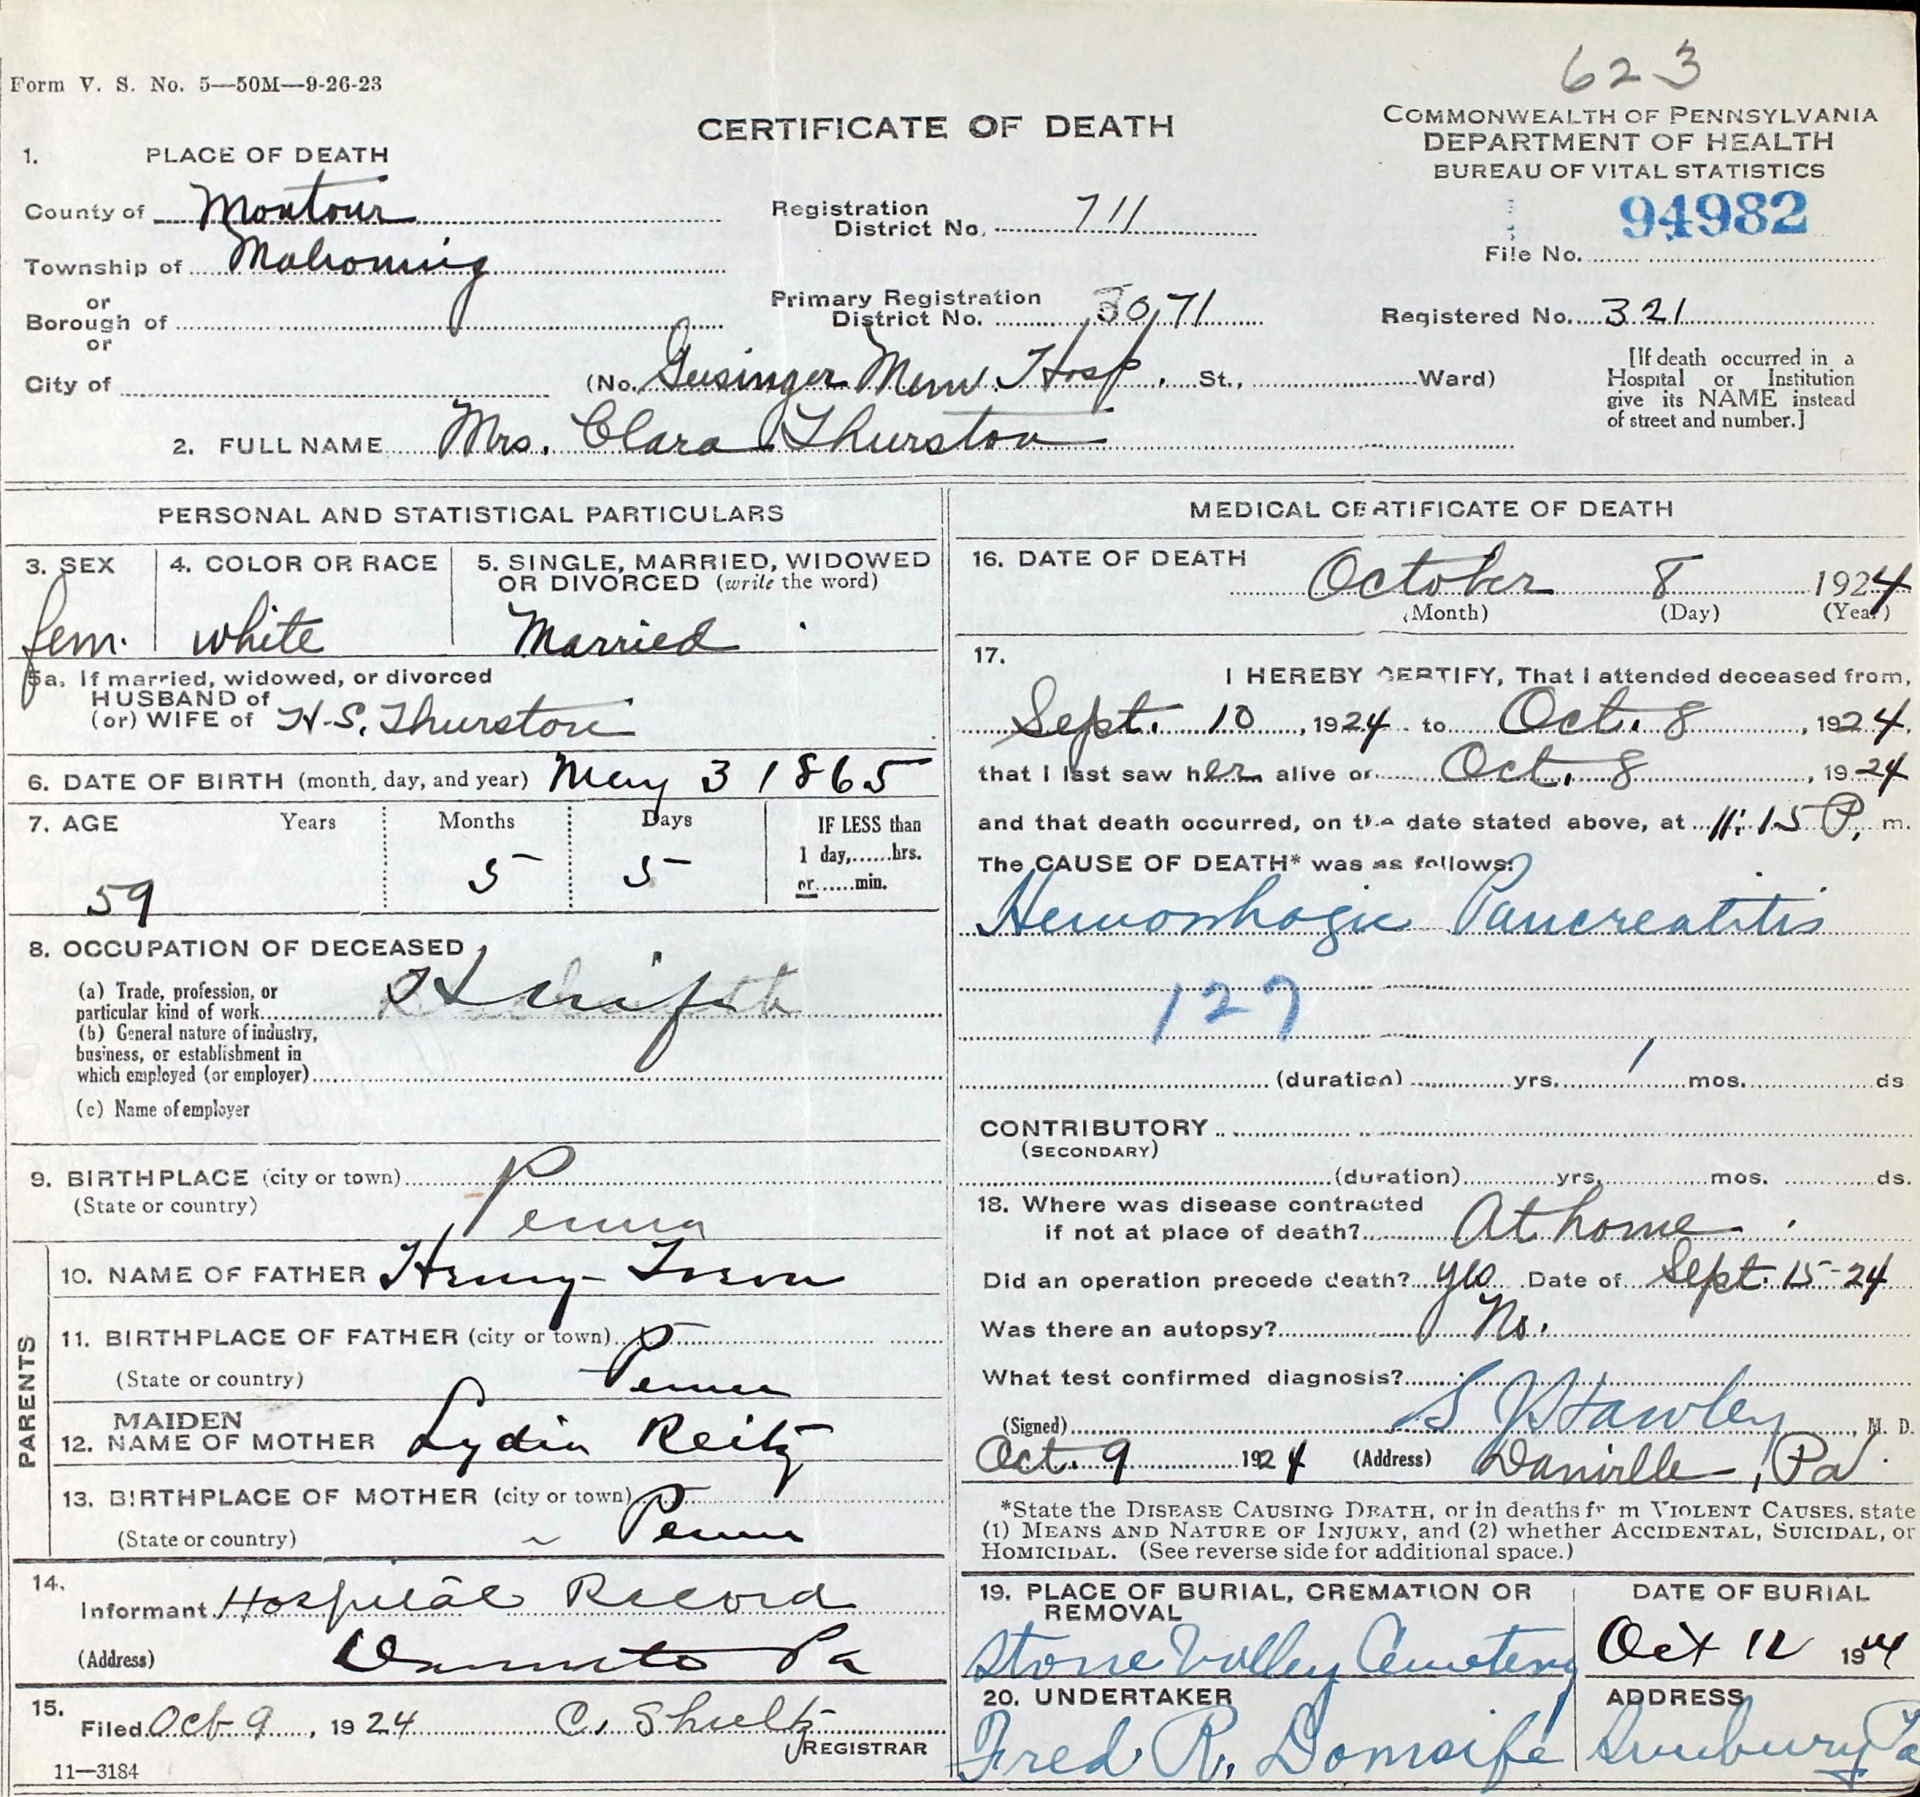 623
Form V. S. No. 5—50M—9-26-23
CERTIFICATE OF DEATH
COMMONWEALTH OF PENNSYLVANIA
DEPARTMENT OF HEALTH
BUREAU OF VITAL STATISTICS
1. PLACE OF DEATH
County of Montour
Registration District No. 711
94982
File No.
Township of Mahoning
or
Borough of
Primary Registration District No. 3071
Registered No. 321
or
City of (No. Geisinger Mem. Hosp. St., Ward)
[If death occurred in a
Hospital or Institution
give its NAME instead
of street and number.]
2. FULL NAME Mrs. Clara Thurston
PERSONAL AND STATISTICAL PARTICULARS
3. SEX
fem.
4. COLOR OR RACE
white
5. SINGLE, MARRIED, WIDOWED
OR DIVORCED (write the word)
Married
5a. If married, widowed, or divorced
HUSBAND of
(or) WIFE of H. S. Thurston
6. DATE OF BIRTH (month, day, and year) May 3 1865
7. AGE Years Months Days
59 5 5
IF LESS than
1 day,......hrs.
or......min.
8. OCCUPATION OF DECEASED
(a) Trade, profession, or
particular kind of work
(b) General nature of industry,
business, or establishment in
which employed (or employer)
(c) Name of employer
9. BIRTHPLACE (city or town)
(State or country) Penna
PARENTS
10. NAME OF FATHER Henry
11. BIRTHPLACE OF FATHER (city or town)
(State or country) Penna
MAIDEN
12. NAME OF MOTHER Lydia Reitz
13. BIRTHPLACE OF MOTHER (city or town)
(State or country) Penna
14.
Informant Hospital Record
(Address) Pa
15.
Filed Oct 9, 1924 C. Shultz
REGISTRAR
11—3184
MEDICAL CERTIFICATE OF DEATH
16. DATE OF DEATH
October 8 1924
(Month) (Day) (Year)
17.
I HEREBY CERTIFY, That I attended deceased from,
Sept. 10, 1924 to Oct. 8, 1924,
that I last saw her alive on Oct. 8, 1924
and that death occurred, on the date stated above, at 11:15 P. m.
The CAUSE OF DEATH* was as follows:
Hemorrhagic Pancreatitis
127
(duration) yrs. 1 mos. ds
CONTRIBUTORY
(SECONDARY)
(duration) yrs. mos. ds.
18. Where was disease contracted
if not at place of death? At home
Did an operation precede death? yes Date of Sept. 15-24
Was there an autopsy? No.
What test confirmed diagnosis?
(Signed) Hawley, M. D.
Oct. 9 1924 (Address) Danville, Pa.
*State the DISEASE CAUSING DEATH, or in deaths fr m VIOLENT CAUSES, state
(1) MEANS AND NATURE OF INJURY, and (2) whether ACCIDENTAL, SUICIDAL, or
HOMICIDAL. (See reverse side for additional space.)
19. PLACE OF BURIAL, CREMATION OR
REMOVAL
Stone Valley Cemetery
DATE OF BURIAL
Oct 12 1924
20. UNDERTAKER
Fred R. Dornsife
ADDRESS
Sunbury Pa